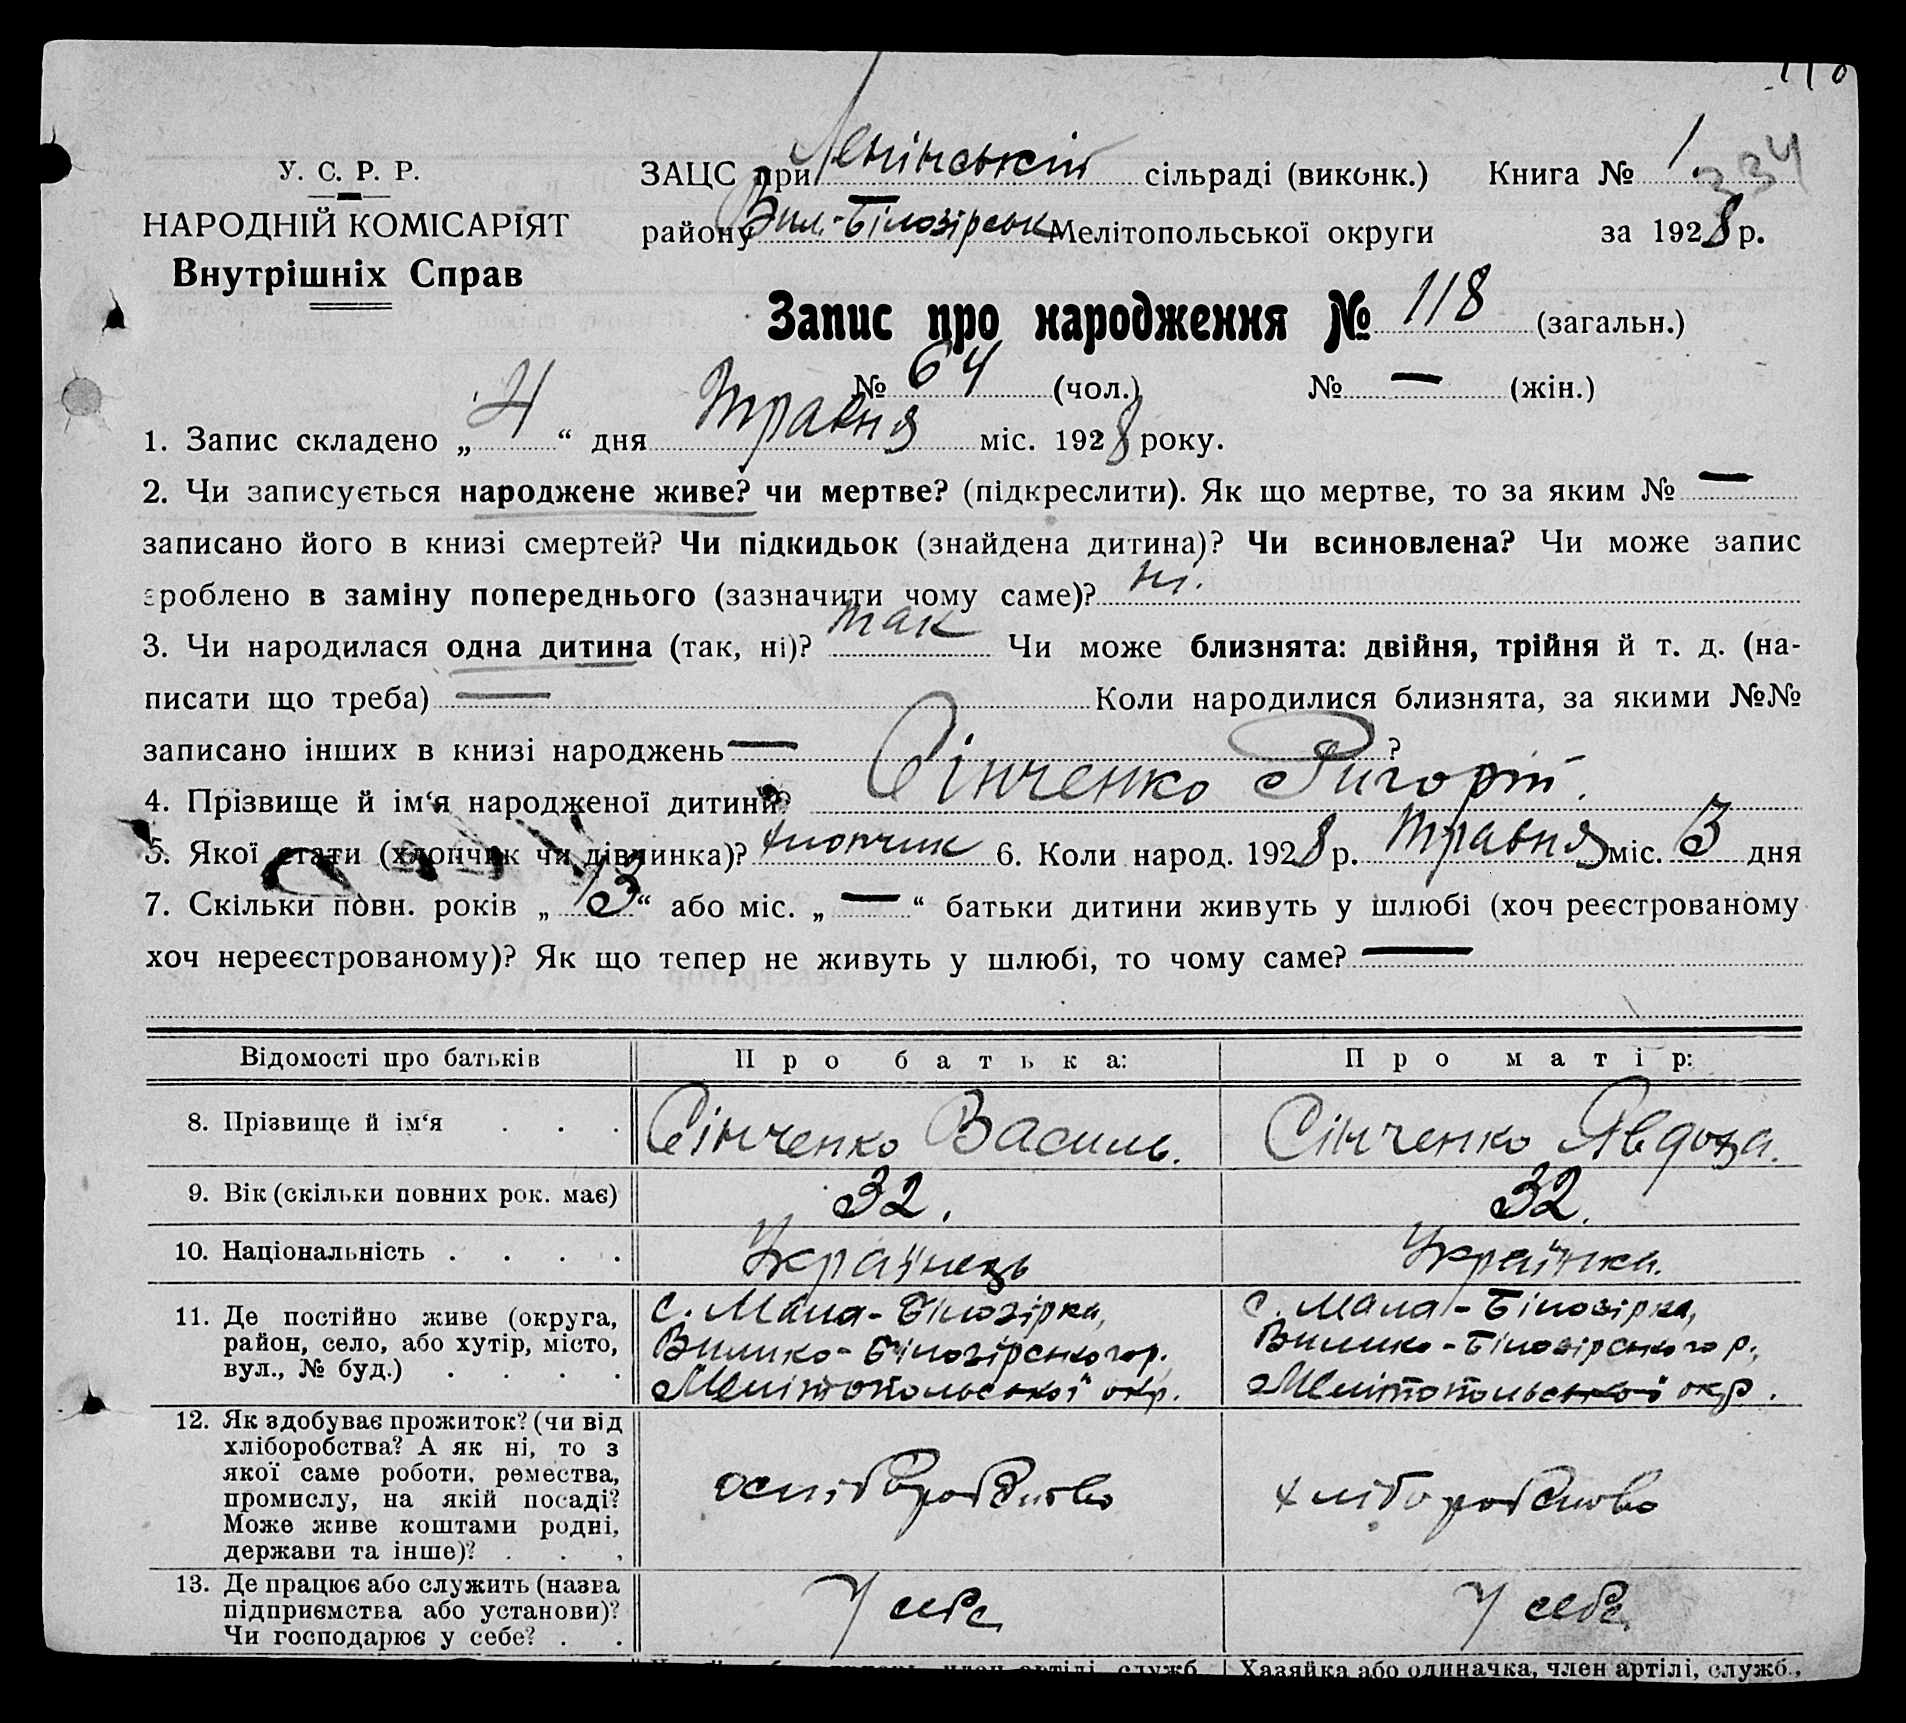 118
У. С. Р. Р.
НАРОДНІЙ КОМІСАРІЯТ
Внутрішніх Справ
ЗАЦС при Ленінській сільраді (виконк.) Книга № 1. 334
району Вел.-Білозірськ Мелітопольської округи за 1928 р.
Запис про народження № 118 (загальн.)
№ 64 (чол.) № — (жін.)
1. Запис складено „ 4 “ дня травня міс. 1928 року.
2. Чи записується народжене живе? чи мертве? (підкреслити). Як що мертве, то за яким № —
записано його в книзі смертей? Чи підкидьок (знайдена дитина)? Чи всиновлена? Чи може запис
зроблено в заміну попереднього (зазначити чому саме)? ні.
3. Чи народилася одна дитина (так, ні)? так Чи може близнята: двійня, трійня й т. д. (на-
писати що треба) — Коли народилися близнята, за якими №№
записано інших в книзі народжень — ?
4. Прізвище й ім‘я народженої дитини? Сінченко Григорій.
5. Якої стати (хлопчик чи дівчинка)? хлопчик 6. Коли народ. 1928 р. травня міс. 3 дня
7. Скільки повн. років „ 13 “ або міс. „ — “ батьки дитини живуть у шлюбі (хоч реєстрованому
хоч нереєстрованому)? Як що тепер не живуть у шлюбі, то чому саме? —
Відомості про батьків Про батька: Про матір:
8. Прізвище й ім‘я . . . Сінченко Василь. Сінченко Явдоха.
9. Вік (скільки повних рок. має) 32. 32.
10. Національність . . . . Українець Українка.
11. Де постійно живе (округа,
район, село, або хутір, місто,
вул., № буд.) . . . .
с. Мала-Білозірка,
Велико-Білозірського р.
Мелітопольської окр.
с. Мала-Білозірка,
Велико-Білозірського р.,
Мелітопольської окр.
12. Як здобуває прожиток? (чи від
хліборобства? А як ні, то з
якої саме роботи, ремества,
промислу, на якій посаді?
Може живе коштами родні,
держави та інше)? . . .
хліборобство
хліборобство
13. Де працює або служить (назва
підприємства або установи)?
Чи господарює у себе? . .
У себе
У себе
член артілі, служб.
Хазяйка або одиначка, член артілі, служб.,